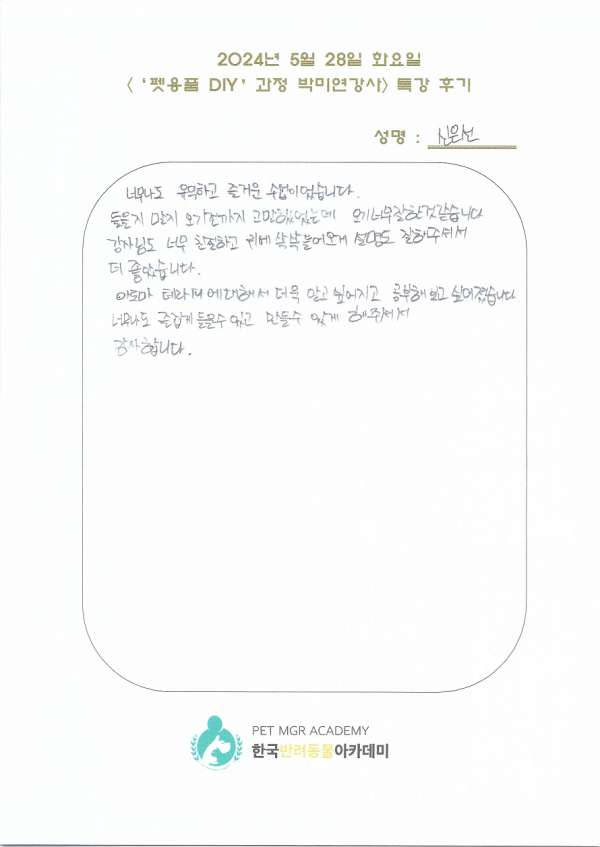 2024년 5월 28일 화요일
< ‘펫용품 DIY’ 과정 박미연강사> 특강 후기
성명 : 신은선
너무나도 유익하고 즐거운 수업이었습니다.
들을지 말지 오기전까지 고민했었는데 오기너무잘한것같습니다
강사님도 너무 친절하고 귀에 쏙쏙들어오게 설명도 잘해주셔서
더 좋았습니다.
아로마 테라피에대해서 더욱 알고 싶어지고 공부해 보고 싶어졌습니다
너무나도 즐겁게 들을수 있고 만들수 있게 해주셔서
감사합니다.
PET MGR ACADEMY
한국반려동물아카데미